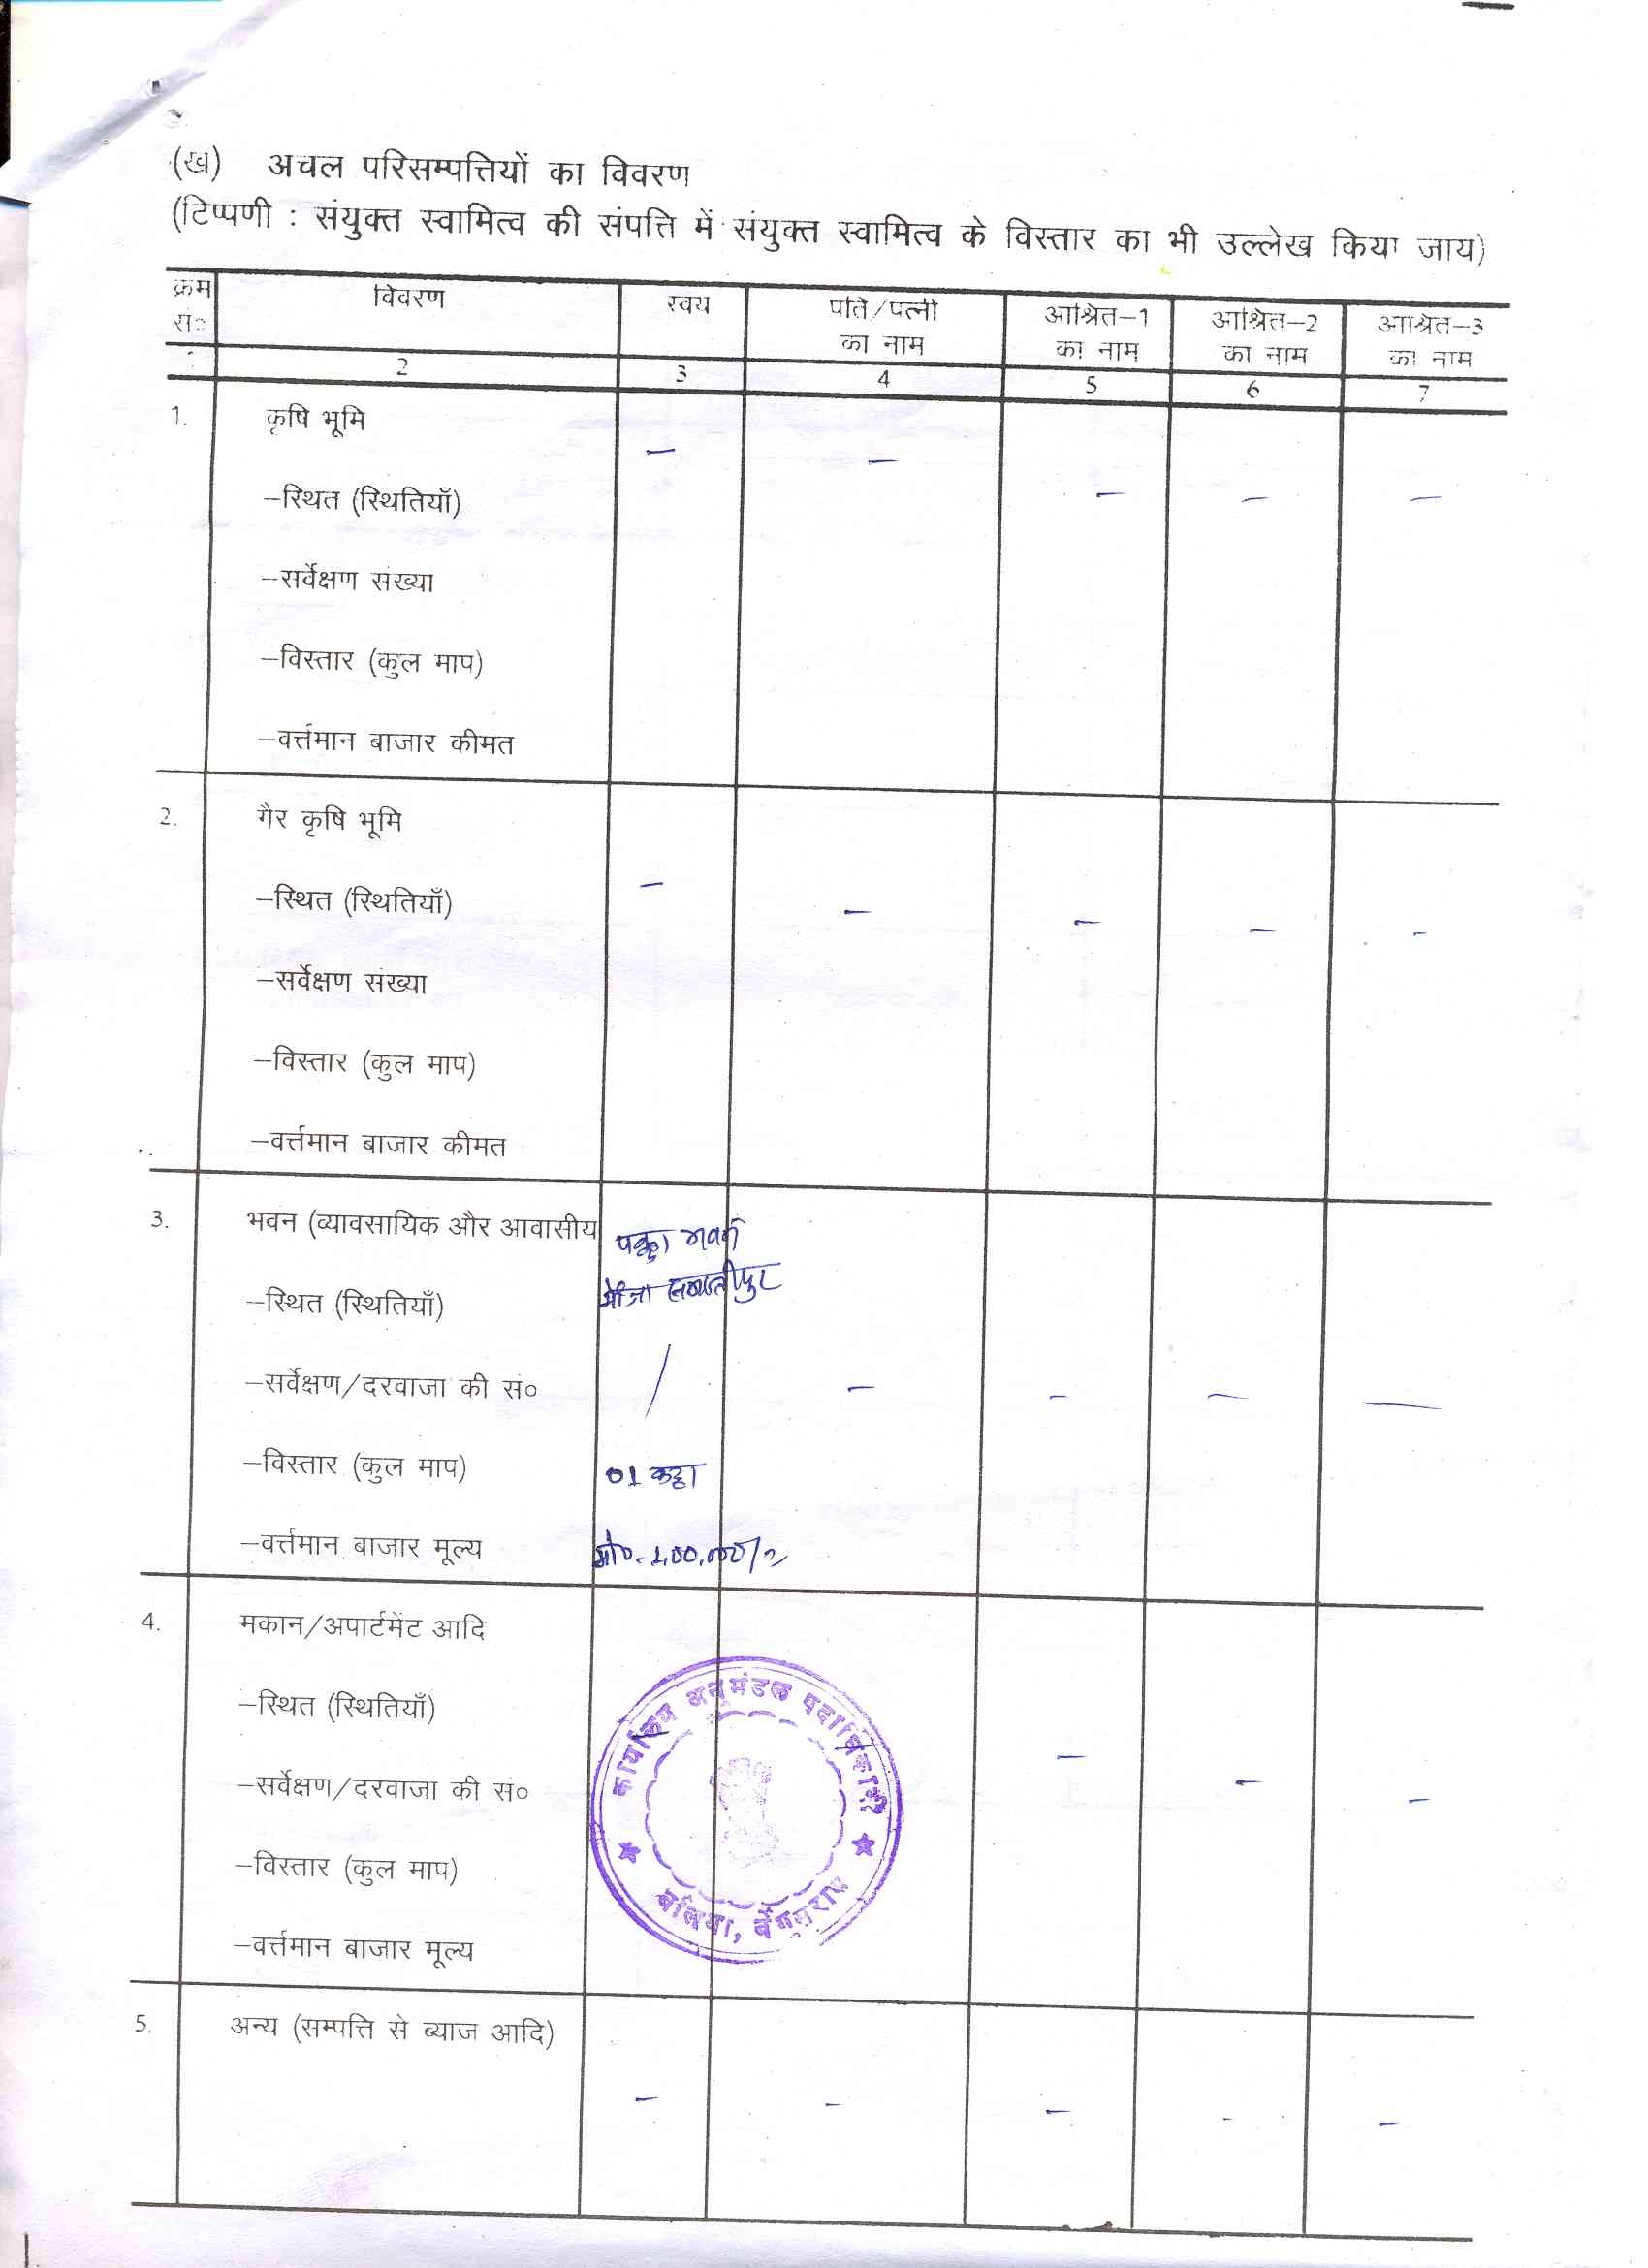 (ख) अचल परिसम्पत्तियों का विवरण
(टिप्पणी : संयुक्त स्वामित्व की संपत्ति में संयुक्त स्वामित्व के विस्तार का भी उल्लेख किया जाय)
क्रम सं० विवरण स्वयं पति/पत्नी का नाम आश्रित-1 का नाम आश्रित-2 का नाम आश्रित-3 का नाम
2 3 4 5 6 7
1. कृषि भूमि – –
–स्थित (स्थितियाँ) – – –
–सर्वेक्षण संख्या
–विस्तार (कुल माप)
–वर्त्तमान बाजार कीमत
2. गैर कृषि भूमि
–स्थित (स्थितियाँ) – – – – –
–सर्वेक्षण संख्या
–विस्तार (कुल माप)
–वर्त्तमान बाजार कीमत
3. भवन (व्यावसायिक और आवासीय पक्का भवन
–स्थित (स्थितियाँ) मौजा
–सर्वेक्षण/दरवाजा की सं० / – – – –
–विस्तार (कुल माप) 01 कट्ठा
–वर्त्तमान बाजार मूल्य मो०. 1,00,000/-
4. मकान/अपार्टमेंट आदि
–स्थित (स्थितियाँ) – – –
–सर्वेक्षण/दरवाजा की सं० – –
–विस्तार (कुल माप)
–वर्त्तमान बाजार मूल्य
कार्यालय अनुमंडल पदाधिकारी
बलिया, बेगूसराय
5. अन्य (सम्पत्ति से ब्याज आदि)
– – – – –